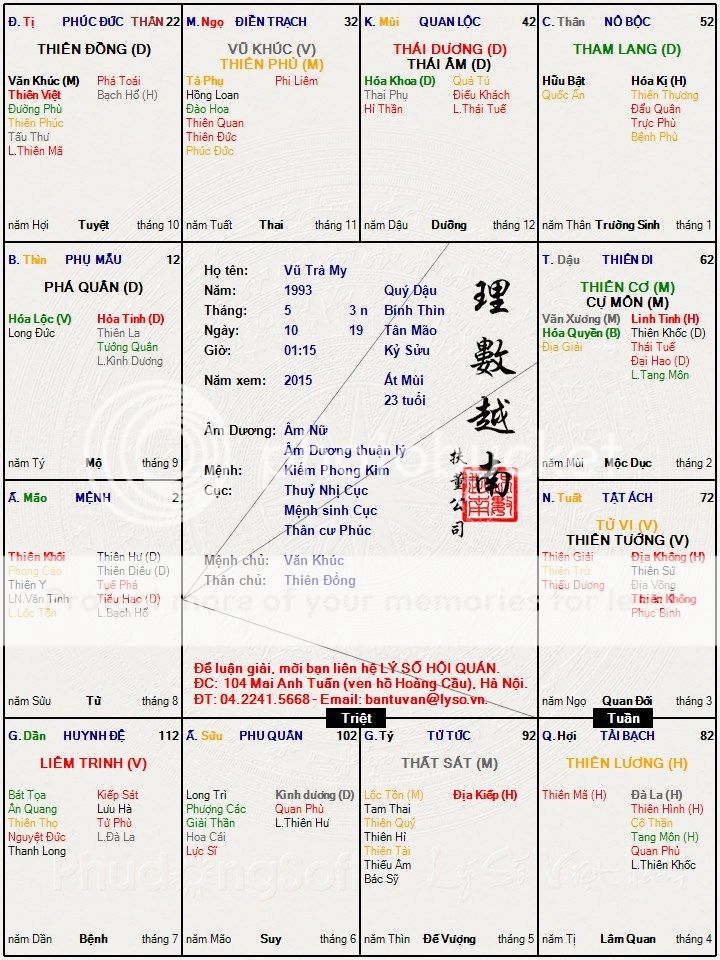 Đ. Tị PHÚC ĐỨC THÂN 22
THIÊN ĐỒNG (D)
Văn Khúc (M) Phá Toái
Thiên Việt Bạch Hổ (H)
Đường Phù
Thiên Phúc
Tấu Thư
L.Thiên Mã
năm Hợi Tuyệt tháng 10
M. Ngọ ĐIỀN TRẠCH 32
VŨ KHÚC (V)
THIÊN PHỦ (M)
Tả Phụ Phi Liêm
Hồng Loan
Đào Hoa
Thiên Quan
Thiên Đức
Phúc Đức
năm Tuất Thai tháng 11
K. Mùi QUAN LỘC 42
THÁI DƯƠNG (D)
THÁI ÂM (D)
Hóa Khoa (D) Quả Tú
Thai Phụ Điếu Khách
Hỉ Thần L.Thái Tuế
năm Dậu Dưỡng tháng 12
C. Thân NÔ BỘC 52
THAM LANG (D)
Hữu Bật Hóa Kị (H)
Quốc Ấn Thiên Thương
Đẩu Quân
Trực Phù
Bệnh Phù
năm Thân Trường Sinh tháng 1
B. Thìn PHỤ MẪU 12
PHÁ QUÂN (D)
Hóa Lộc (V) Hỏa Tinh (D)
Long Đức Thiên La
Tướng Quân
L.Kình Dương
năm Tý Mộ tháng 9
Họ tên: Vũ Trả My
Năm: 1993 Quý Dậu
Tháng: 5 3 n Bính Thìn
Ngày: 10 19 Tân Mão
Giờ: 01:15 Kỷ Sửu
Năm xem: 2015 Ất Mùi
23 tuổi
Âm Dương: Âm Nữ
Âm Dương thuận lý
Mệnh: Kiếm Phong Kim
Cục: Thuỷ Nhị Cục
Mệnh sinh Cục
Thân cư Phúc
Mệnh chủ: Văn Khúc
Thân chủ: Thiên Đồng
理數越南
扶董公司
T. Dậu THIÊN DI 62
THIÊN CƠ (M)
CỰ MÔN (M)
Văn Xương (M) Linh Tinh (H)
Hóa Quyền (B) Thiên Khốc (D)
Địa Giải Thái Tuế
Đại Hao (D)
L.Tang Môn
năm Mùi Mộc Dục tháng 2
Ấ. Mão MỆNH 2
Thiên Khôi Thiên Hư (D)
Phong Cáo Thiên Diêu (D)
Thiên Y Tuế Phá
LN.Văn Tinh Tiểu Hao (D)
L.Lộc Tồn L.Bạch Hổ
năm Sửu Tử tháng 8
N. Tuất TẬT ÁCH 72
TỬ VI (V)
THIÊN TƯỚNG (V)
Thiên Giải Địa Không (H)
Thiên Trù Thiên Sứ
Thiếu Dương Địa Võng
Thiên Không
Phục Binh
năm Ngọ Quan Đới tháng 3
Để luận giải, mời bạn liên hệ LÝ SỐ HỘI QUÁN.
ĐC: 104 Mai Anh Tuấn (ven hồ Hoàng Cầu), Hà Nội.
ĐT: 04.2241.5668 - Email: bantuvan@lyso.vn.
Triệt Tuần
G. Dần HUYNH ĐỆ 112
LIÊM TRINH (V)
Bát Tọa Kiếp Sát
Ân Quang Lưu Hà
Thiên Thọ Tử Phù
Nguyệt Đức L.Đà La
Thanh Long
năm Dần Bệnh tháng 7
Ấ. Sửu PHU QUÂN 102
Long Trì Kình dương (D)
Phượng Các Quan Phù
Giải Thần L.Thiên Hư
Hoa Cái
Lực Sĩ
năm Mão Suy tháng 6
G. Tý TỬ TỨC 92
THẤT SÁT (M)
Lộc Tồn (M) Địa Kiếp (H)
Tam Thai
Thiên Quý
Thiên Hỉ
Thiên Tài
Thiếu Âm
Bác Sỹ
năm Thìn Đế Vượng tháng 5
Q. Hợi TÀI BẠCH 82
THIÊN LƯƠNG (H)
Thiên Mã (H) Đà La (H)
Thiên Hình (H)
Cô Thần
Tang Môn (H)
Quan Phủ
L.Thiên Khốc
năm Tị Lâm Quan tháng 4